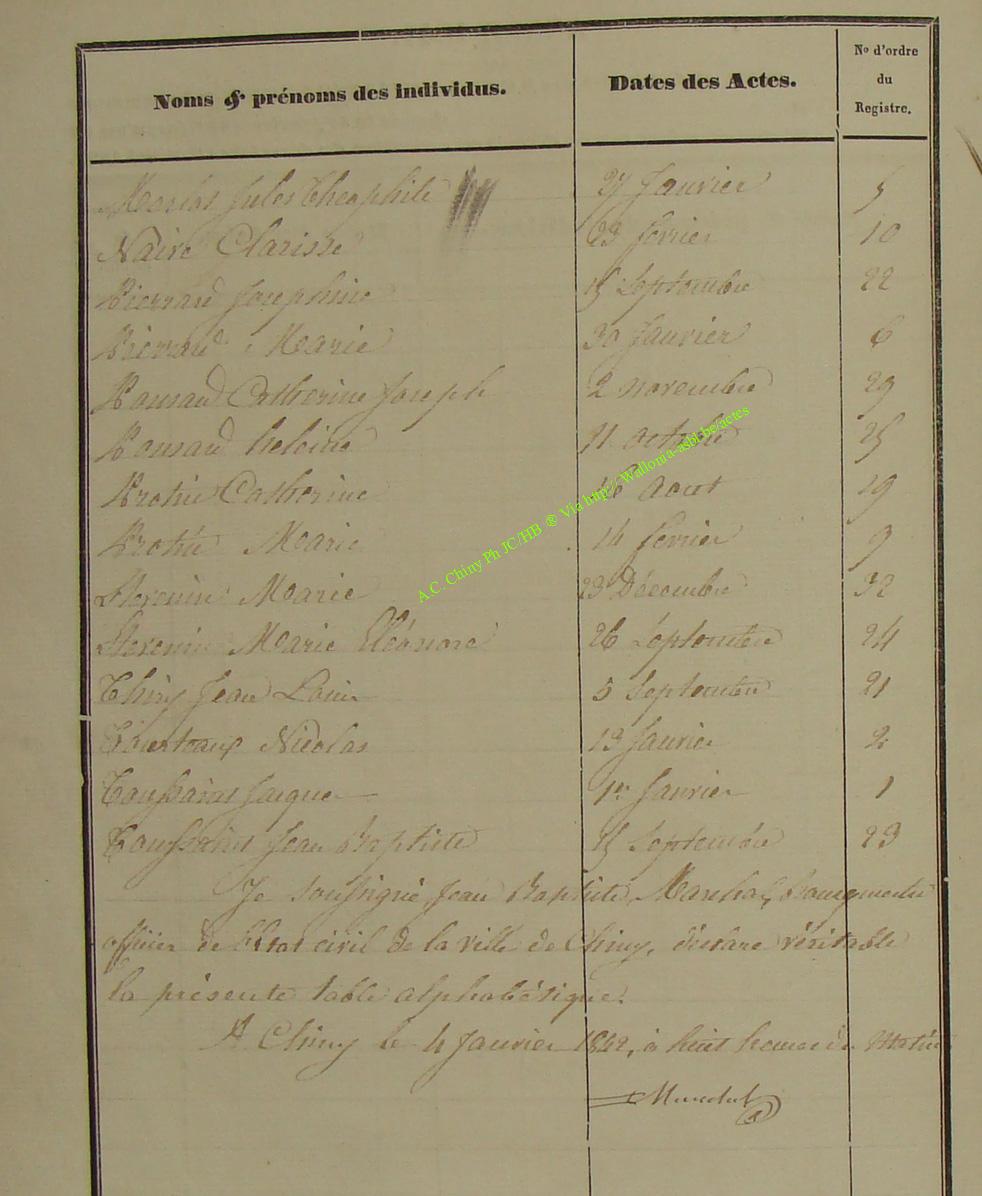 Noms & prénoms des individus. Dates des Actes. No d'ordre du Registre.
Jules Theophile 27 Janvier 5
Naire Clarisse 23 fevrier 10
Pierrard Josephine 15 Septembre 22
Pierrard Marie 30 Janvier 6
Ponsard Catherine Joseph 2 novembre 29
Ponsard heloine 11 octobre 25
Protin Catherine 16 Aout 19
Protin Marie 14 fevrier 9
Stevenin Marie 23 Décembre 32
Stevenin Marie Eléonore 26 Septembre 24
Thiry Jean Louis 5 Septembre 21
Nicolas 13 Janvier 2
Toussaint Jacques 1er Janvier 1
Toussaint Jean Baptiste 15 Septembre 23
Je soussigné Jean Baptiste Marchal, bourgmestre
officier de l'état civil de la ville de Chiny, déclare véritable
la présente table alphabétique.
A Chiny le 4 Janvier 1842, à huit heures du Matin
Marchal
A.C. Chiny Ph JC/HB ® Via http://Wallonia-asbl.be/actes